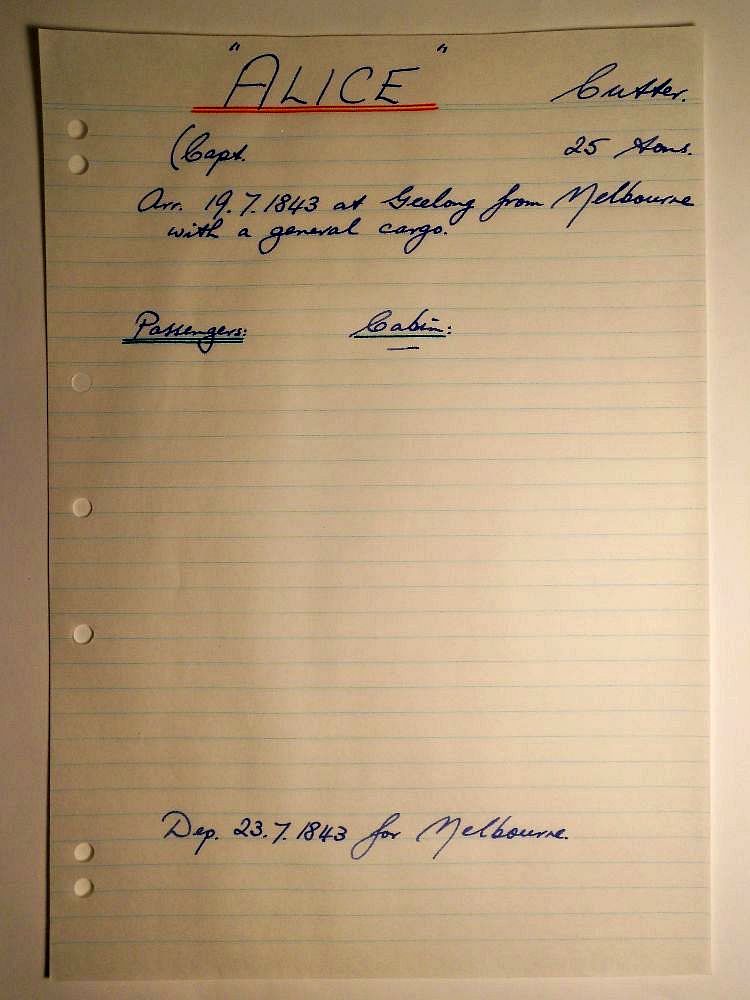 "ALICE" Cutter.
(Capt. 25 tons.
Arr. 19.7.1843 at Geelong from Melbourne
with a general cargo.
Passengers: Cabin:
—
Dep. 23.7.1843 for Melbourne.